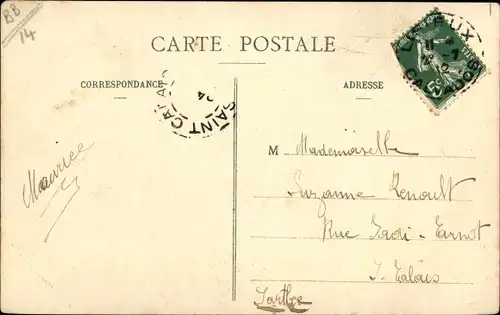 BB
14
CARTE POSTALE
CORRESPONDANCE
ADRESSE
SAINT CALAIS
24
LISIEUX
CALVADOS
5c
M Mademoiselle
Suzanne Renoult
Rue Sadi-Carnot
St Calais
Sarthe
Maurice